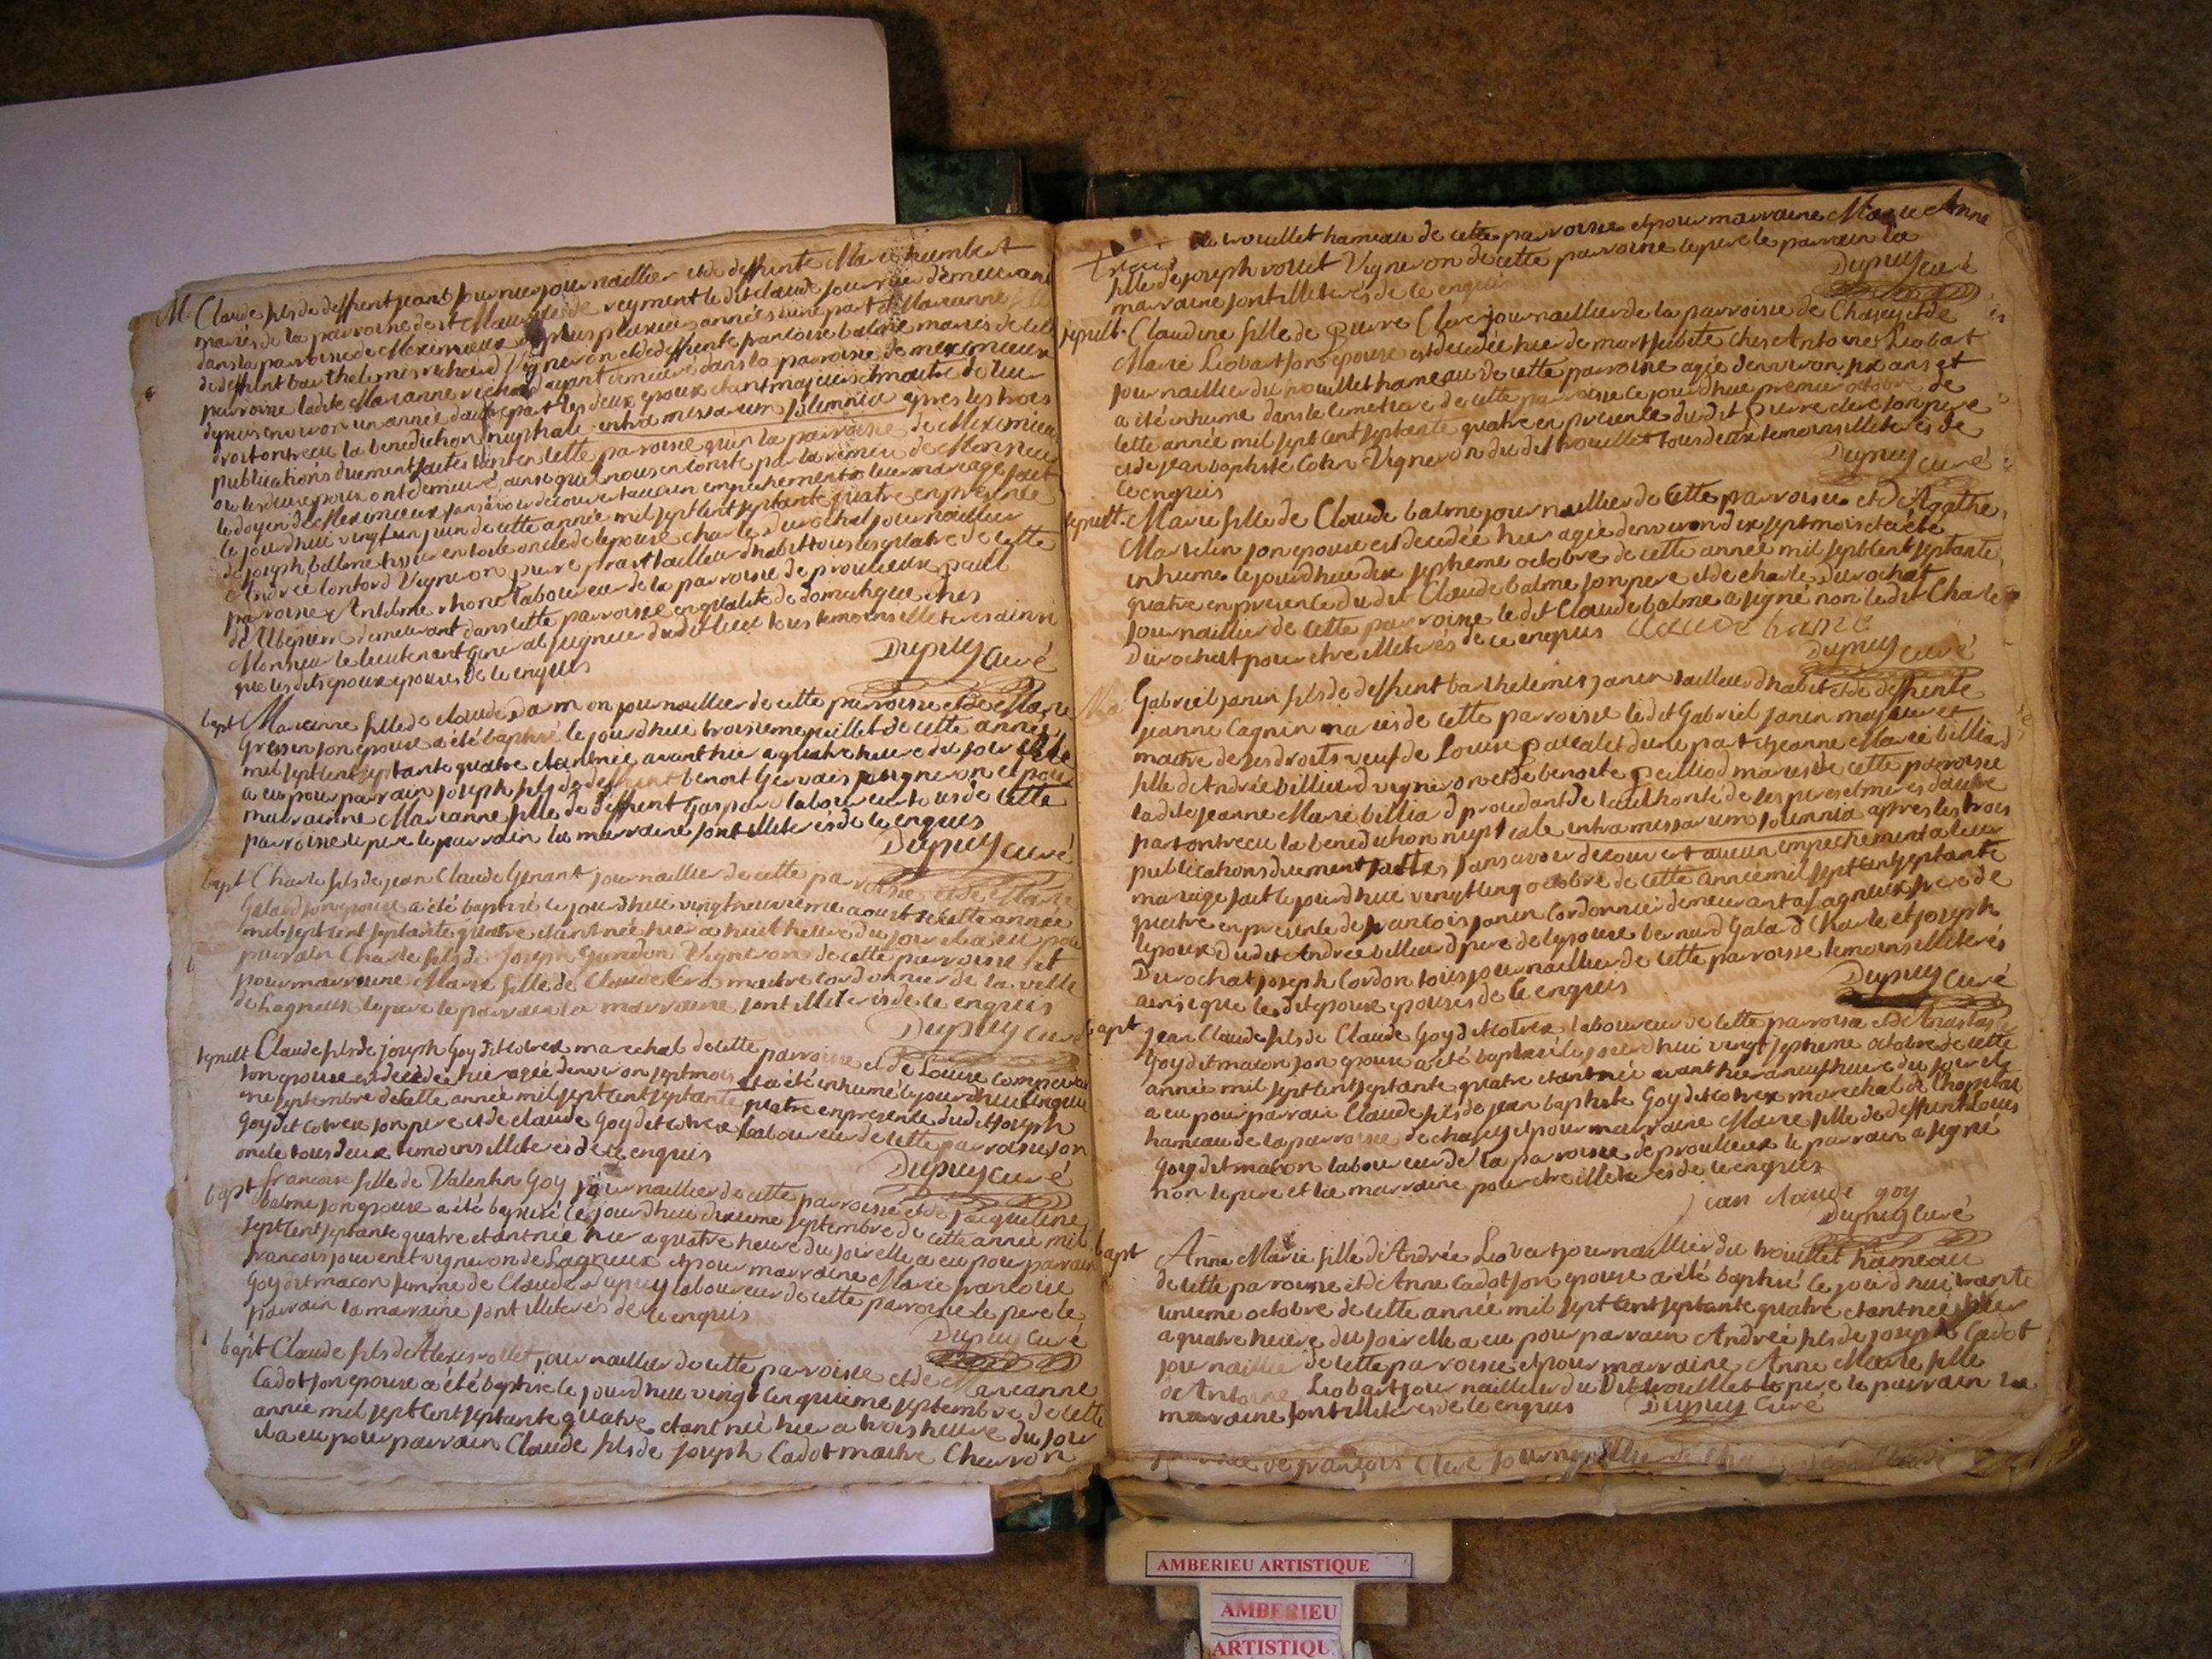 M. Claude fils de deffunt jeant fournier journaillier et de deffunte Marie humbert
mariés de la parroisse de st Maurice de reyment le dit claude fournier demeurant
dans la parroisse de Meximieux depuis plusieurs années d'une part et Marianne fille
de deffunt barthelemis richard Vigneron et de deffunte francoise balme mariés de cette
parroisse ladite Marianne richard ayant demeuré dans la parroisse de meximieux
depuis environ un année d'autre part les deux epoux etant majeurs et maitre de leur
droit ont recu la benediction nuptiale intra missarum solemnia apres les trois
publications duement faites tant en cette parroisse qu'en la parroisse de Meximieux
ou les deux epoux ont demeuré ainsi qu'il nous en conste par la remise de Monsieur
le doyen de Meximieux sans avoir decouvert aucun empechement a leur mariage fait
ce jourd'hui vingt un juin de cette année mil sept cent septante quatre en presence
de joseph balme tissier en toile oncle de lepouse charle durochat journaillier
Andrée contord Vigneron pierre prat tailleur d'habit tous les quatre de cette
parroisse Antelme rhone laboureur de la parroisse de proulieux paul
demeurant dans cette parroisse en qualité de domestique chés
Monsieur le lieutenant general seigneur du dit lieu tous temoins illiterés ainsi
que les dits epoux epouses de ce enquis
Dupuy Curé
bapt Marianne fille de claude damon journaillier de cette parroisse et de Marie
son epouse a été baptisé ce jourd'hui troisieme juillet de cette année
mil sept cent septante quatre etant née avant hier a quatre heure du soir elle
a eu pour parrain joseph fils de deffunt benoit Gervais vigneron et pour
marrainne Marianne fille de deffunt Gaspard laboureur tous de cette
parroisse le pere le parrain la marraine sont illiterés de ce enquis
Dupuy curé
bapt Charle fils de jean Claude Genant journaillier de cette parroisse et de Marie
Galand son epouse a été baptisé ce jourd'hui vingt neuvieme aoust de cette année
mil sept cent septante quatre etant née hier a huit heure du soir il a eu pour
parrain Charle fils de joseph Vigneron de cette parroisse et
pour marraine Marie fille de Claude maitre cordonnier de la ville
de Lagnieux le pere le parrain la marraine sont illiterés de ce enquis
Dupuy curé
sepult Claude fils de joseph Goy dit cotrex marechal de cette parroisse et de Louise
son epouse est decedé hier agé denviron sept mois et a été inhumé ce jourd'hui cinquie
me septembre de cette année mil sept cent septante quatre en presence du dit joseph
Goy dit cotrex son pere et de claude Goy dit cotrex laboureur de cette parroisse son
oncle tous deux temoins illiterés de ce enquis
Dupuy curé
bapt francoise fille de Valentin Goy journaillier de cette parroisse et de jacqueline
balme son epouse a été baptisé ce jourd'hui dixieme septembre de cette année mil
sept cent septante quatre etant née hier a quatre heure du soir elle a eu pour parrain
francois jouvenet vigneron de Lagnieux et pour marraine Marie francoise
Goy dit macon femme de Claude Dupuy laboureur de cette parroisse le pere le
parrain la marraine sont illiterés de ce enquis
Dupuy Curé
bapt Claude fils de Alexis rollet journaillier de cette parroisse et de Marianne
Cadot son epouse a été baptisé ce jourd'hui vingt cinquieme septembre de cette
année mil sept cent septante quatre etant né hier a trois heure du soir
il a eu pour parrain Claude fils de joseph Cadot maitre Charron
de trouillet hameau de cette parroisse et pour marraine Marie Anne
fille de joseph rollet Vigneron de cette parroisse le pere le parrain la
marraine sont illiterés de ce enquis
Dupuy curé
sepult. Claudine fille de Pierre Clere journaillier de la parroisse de Chasey et de
Marie Liobart son epouse est decedée hier de mort subite ches Antoine Liobart
journaillier du trouillet hameau de cette parroisse agée denviron six ans et
a été inhumé dans le cimetiere de cette parroisse ce jourd'hui premier octobre de
cette année mil sept cent septante quatre en presence du dit Pierre clere son pere
et de jean baptiste Cotin Vigneron du dit trouillet tous deux temoins illiterés de
ce enquis
Dupuy curé
sepult. Marie fille de Claude balme journaillier de cette parroisse et de Agathe
Martelin son epouse est decedée hier agée denviron dix sept mois et a été
inhumé ce jourd'hui dix septieme octobre de cette année mil sept cent septante
quatre en presence du dit Claude balme son pere et de charle durochat
journaillier de cette parroisse le dit Claude balme a signé non le dit Charle
Durochat pour etre illiterés de ce enquis claude balme
Dupuy curé
Gabriel janin fils de deffunt barthelemis janin tailleur d'habit et de deffunte
jeanne Cagnin mariés de cette parroisse le dit Gabriel janin majeur et
maitre de ses droits veuf de Louise d'une part et jeanne Marie billiard
fille de Andrée billiard vigneron et de benoite mariés de cette parroisse
ladite jeanne Marie billiard procedant de l'authorité de ses peres et meres d'autre
part ont recu la benediction nuptiale intra missarum solemnia apres les trois
publications duement faittes sans avoir decouvert aucun empechement a leur
mariage fait ce jourd'hui vingt cinq octobre de cette année mil sept cent septante
quatre en presence de francois janin cordonnier demeurant a Lagnieux frere de
lepoux du dit Andrée billiard pere de lepouse bernard Galand Charle et joseph
Durochat joseph Cordon tous journaillier de cette parroisse temoins illiterés
ainsi que les dits epoux epouses de ce enquis
Dupuy curé
bapt jean Claude fils de Claude Goy dit cotrex laboureur de cette parroisse et de Anastasie
Goy dit macon son epouse a été baptisé ce jourd'hui vingt septieme octobre de cette
année mil sept cent septante quatre etant né avant hier a neuf heure du soir il
a eu pour parrain Claude fils de jean baptiste Goy dit cotrex marechal de Lhopital
hameau de la parroisse de chasey et pour marraine Marie fille de deffunt Louis
Goy dit macon laboureur de la parroisse de proulieux le parrain a signé
non le pere et la marraine pour etre illiterés de ce enquis
jean claude goy
Dupuy curé
bapt Anne Marie fille de Andrée Liobart journaillier du trouillet hameau
de cette parroisse et de Anne Cadot son epouse a été baptisé ce jourd'hui trante
unieme octobre de cette année mil sept cent septante quatre etant née hier
a quatre heure du soir elle a eu pour parrain Andrée fils de joseph Cadot
journaillier de cette parroisse et pour marraine Anne Marie fille
de Antoine Liobart journaillier du Dit trouillet le pere le parrain la
marraine sont illiterés de ce enquis Dupuy Curé
de françois Clere
AMBERIEU ARTISTIQUE
AMBERIEU
ARTISTIQU